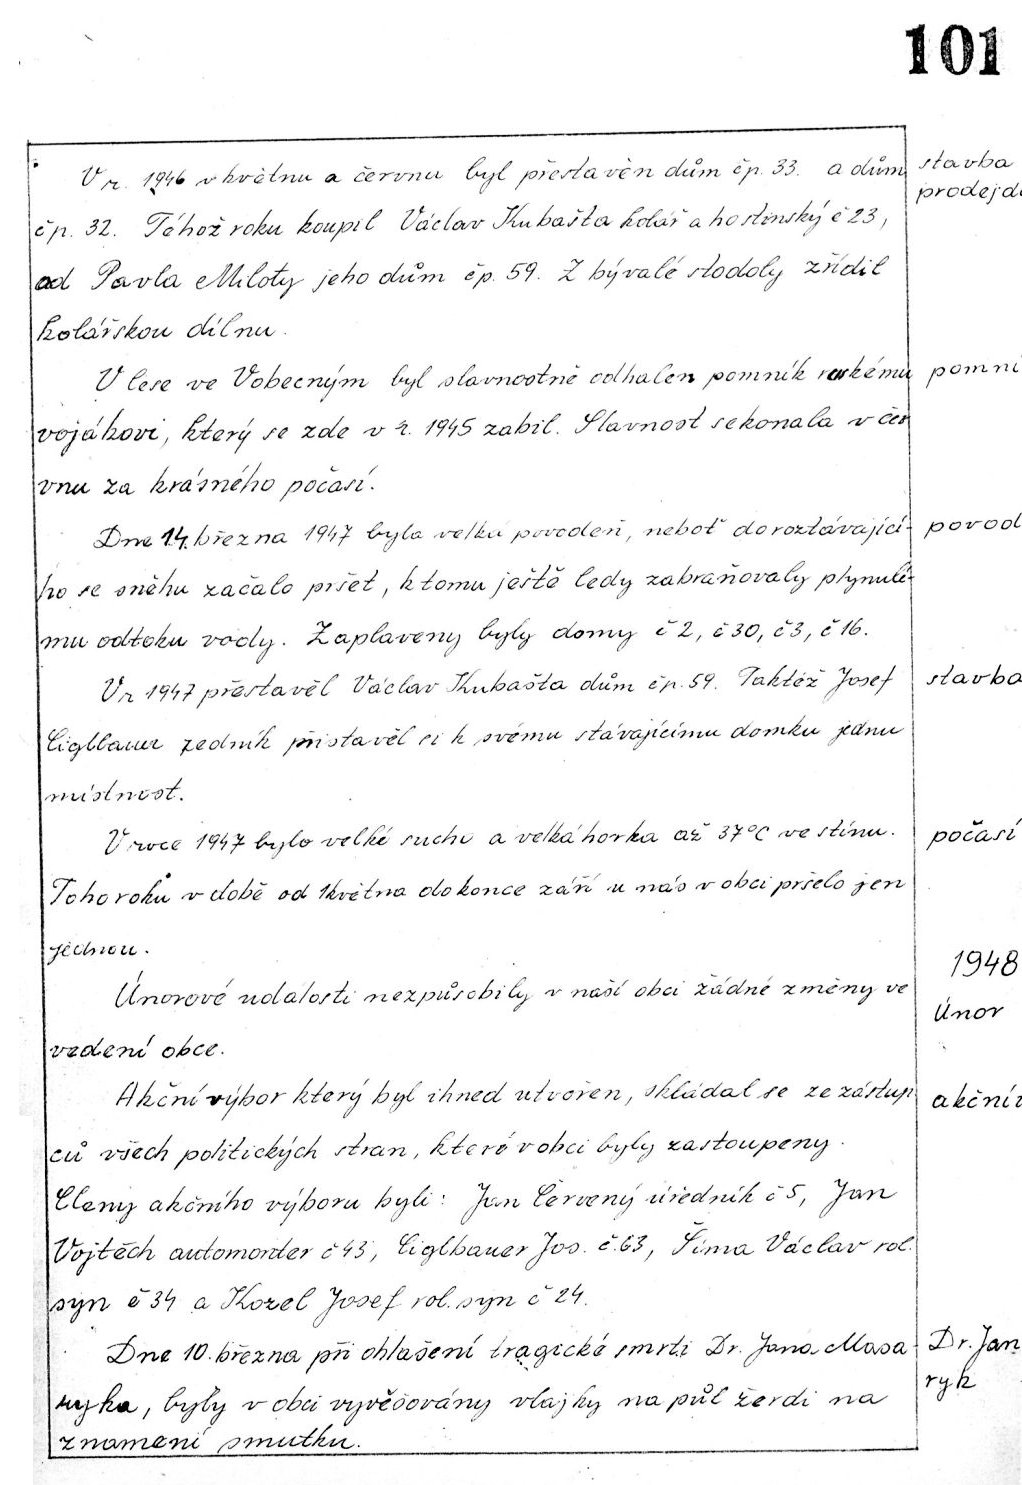 101
V r. 1946 v květnu a červnu byl přestavěn dům čp. 33. a dům
stavba
prodejd
čp. 32. Téhož roku koupil Václav Kubašta kolář a hostinský č 23,
od Pavla Miloty jeho dům čp. 59. Z bývalé stodoly zřídil
kolářskou dílnu.
V lese ve Vobecným byl slavnostně odhalen pomník ruskému
pomní
vojákovi, který se zde v r. 1945 zabil. Slavnost se konala v čer
vnu za krásného počasí.
Dne 14. března 1947 byla velká povodeň, neboť do roztávající-
povod
ho se sněhu začalo pršet, k tomu ještě ledy zabraňovaly plynulé-
mu odtoku vody. Zaplaveny byly domy č 2, č 30, č 3, č 16.
V r 1947 přestavěl Václav Kubašta dům čp. 59. Taktéž Josef
stavba
Ciglbauer zedník přistavěl si k svému stávajícímu domku jednu
místnost.
V roce 1947 bylo velké sucho a velká horka až 37°C ve stínu.
počasí
Toho roku v době od 1 května do konce září u nás v obci pršelo jen
jednou.
1948
Únorové udalosti nezpůsobily v naší obci žádné změny ve
Únor
vedení obce.
Akční výbor který byl ihned utvořen, skládal se ze zástup
akční
ců všech politických stran, které v obci byly zastoupeny.
Členy akčního výboru byli: Jan Červený úředník č 5, Jan
Vojtěch automonter č 43, Ciglbauer Jos. č. 63, Šíma Václav rol.
syn č 34 a Kozel Josef rol. syn č 24.
Dne 10. března při ohlašení tragické smrti Dr. Jana Masa-
Dr. Jan
ryka, byly v obci vyvěšovány vlajky na půl žerdi na
ryk
znamení smutku.